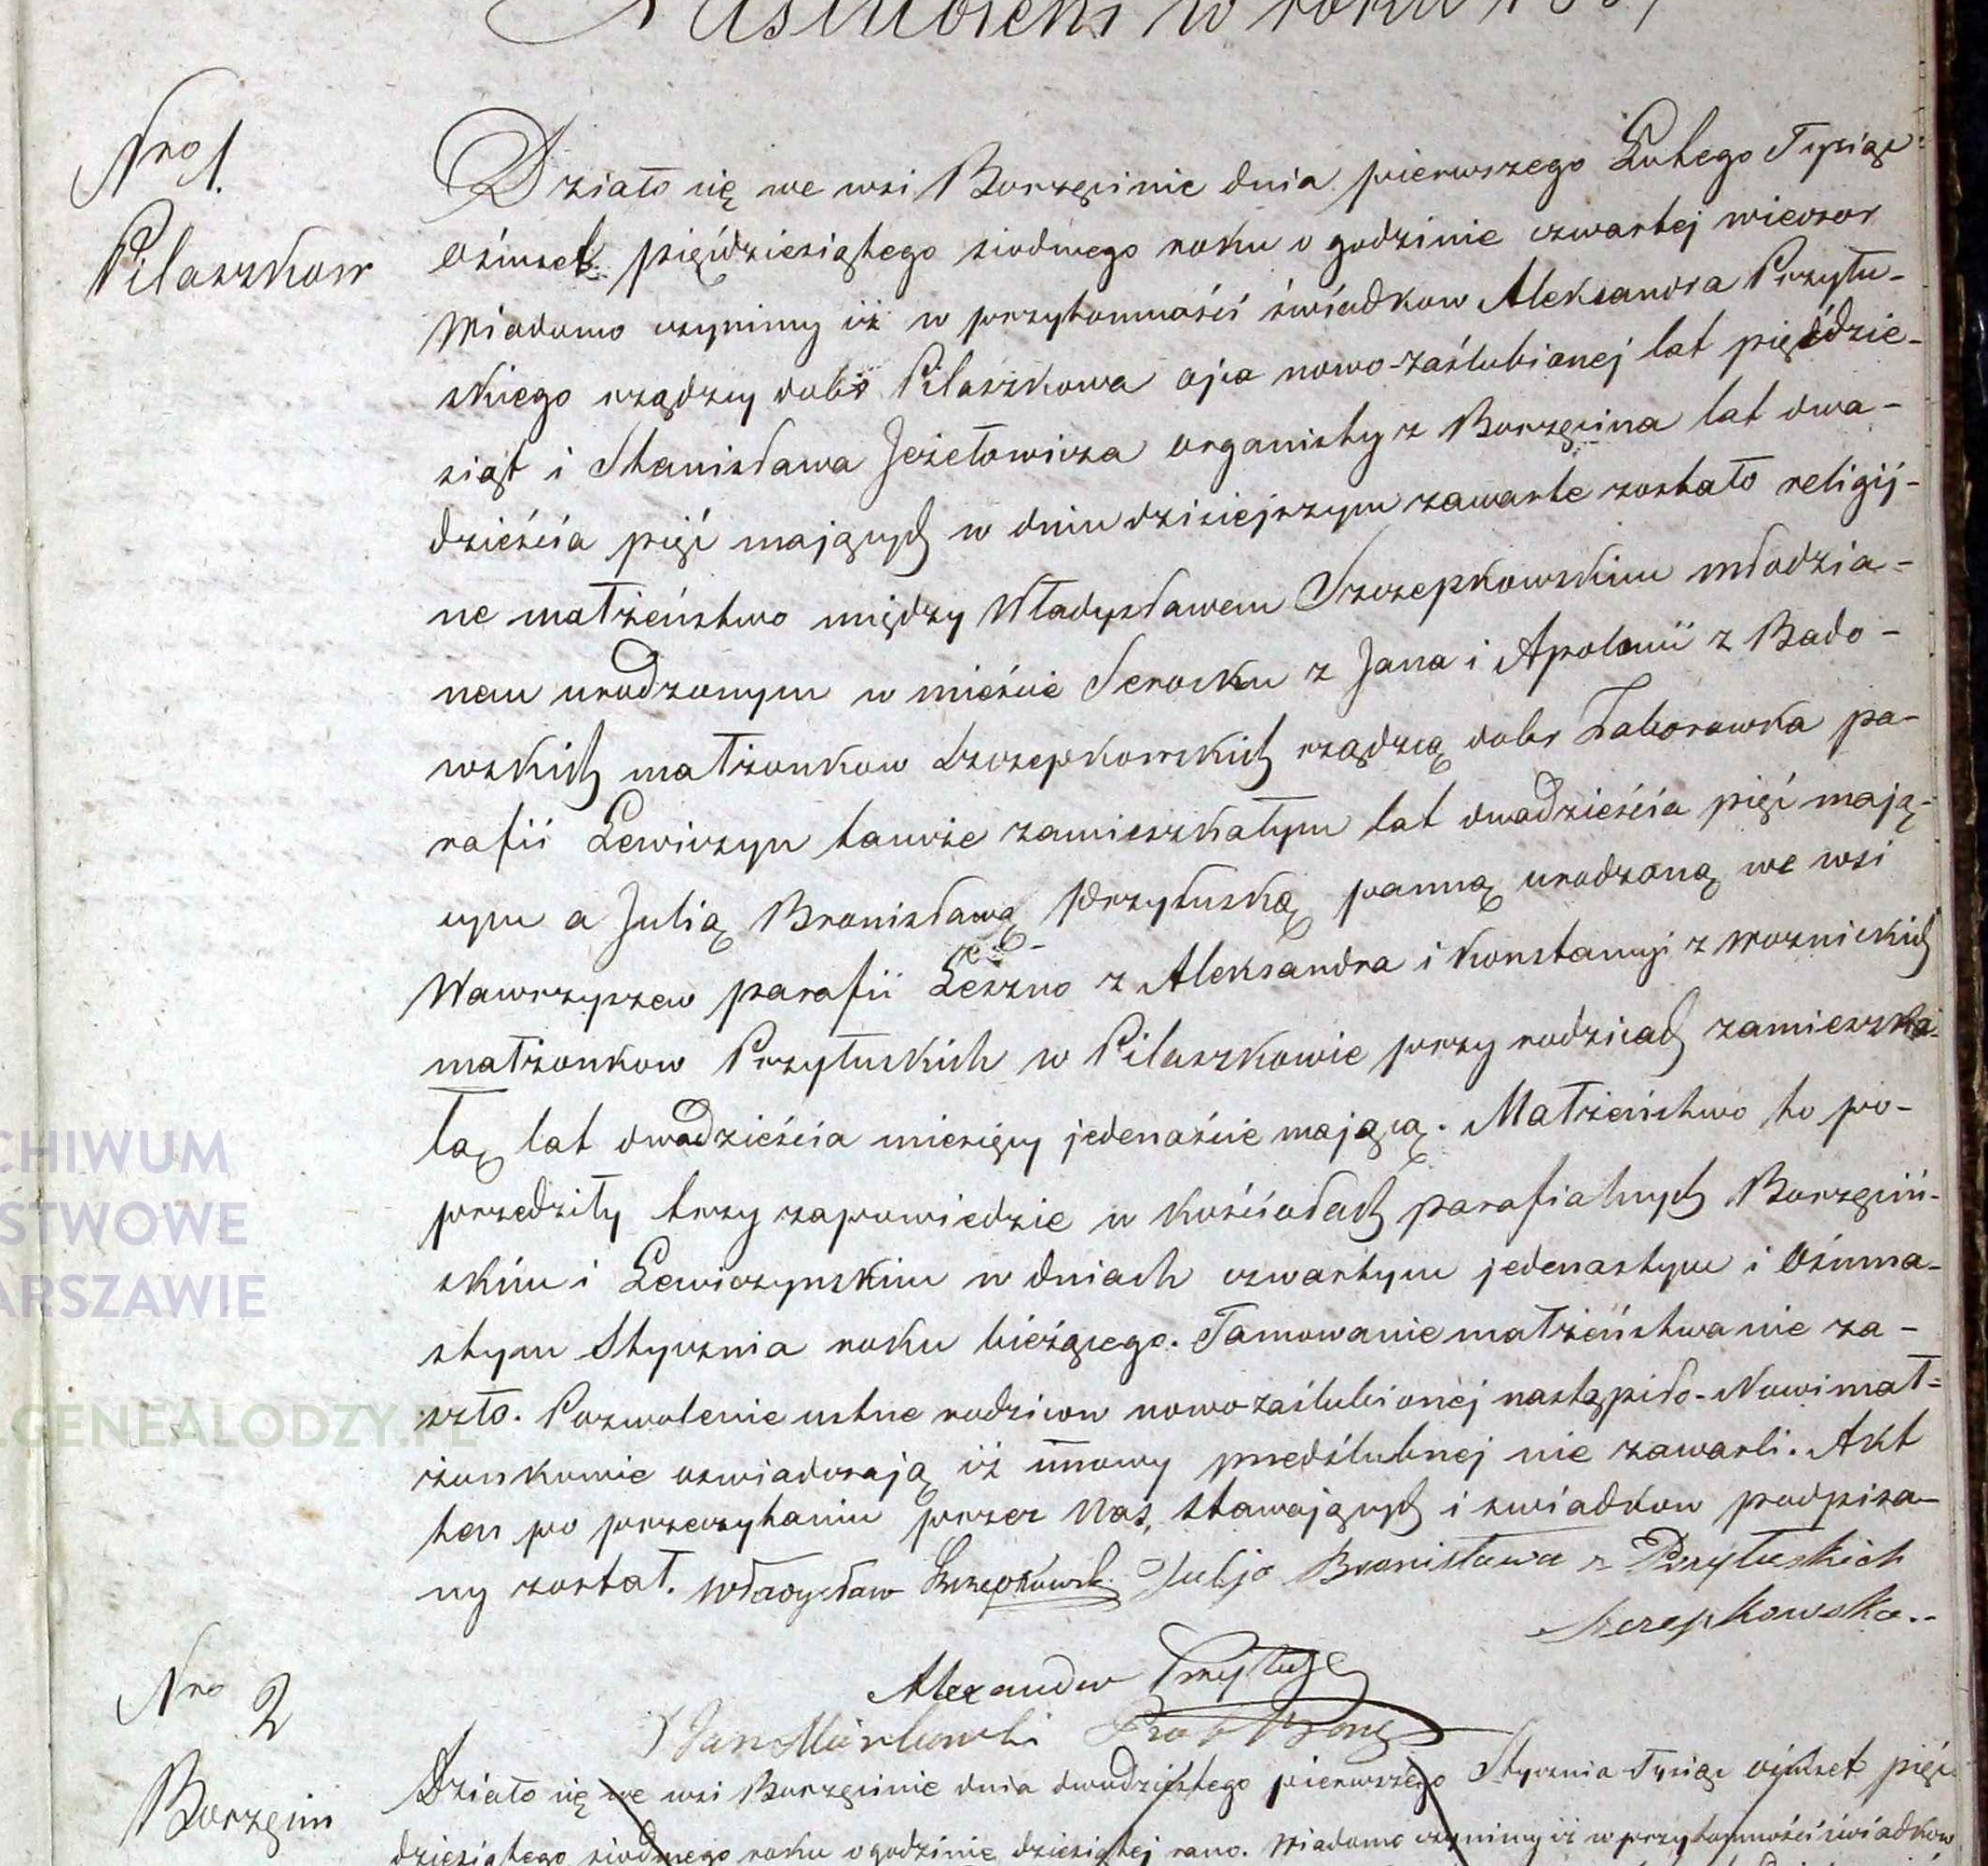 Zaślubieni w roku 1857
Nro 1.
Pilaszkow
Działo się we wsi Borzęcinie dnia pierwszego Lutego Tysiąc
ośmset pięćdziesiątego siodmego roku o godzinie czwartej wieczor
Wiadomo czynimy iż w przytomności świadkow Aleksandra Przytu-
skiego rządzcy dobr Pilaszkowa ojca nowo-zaślubionej lat pięćdzie-
siąt i Stanisława Jeżełowicza organisty z Borzęcina lat dwa-
dzieścia pięć mających w dniu dzisiejszym zawarte zostało religij-
ne małżeństwo między Władysławem Szczepkowskim młodzia-
nem urodzonym w mieście Serocku z Jana i Apolonii z Bado-
wskich małżonkow Szczepkowskich rządzcą dobr Zaborowka pa-
rafii Lewiczyn tamże zamieszkałym lat dwadzieścia pięć mają-
cym a Julią Bronisławą Przytuską panną urodzoną we wsi
Wawrzyszew parafii Leszno z Aleksandra i Konstancyi z Woznickich
małżonkow Przytuskich w Pilaszkowie przy rodzicach zamieszka-
łą lat dwadzieścia miesięcy jedenaście mającą. Małżeństwo to po-
przedziły trzy zapowiedzie w kościołach parafialnych Borzęciń-
skim i Lewiczynskim w dniach czwartym jedenastym i Ośmna-
stym Stycznia roku bieżącego. Tamowanie małżeństwa nie za-
szło. Pozwolenie ustne rodzicow nowo-zaślubionej nastąpiło. Nowi mał-
żonkowie oswiadczają iż umowy predślubnej nie zawarli. Akt
ten po przeczytaniu przez Nas, stawających i swiadkow podpisa-
ny został. Władysław Szczepkowski Julja Bronisława z Przytuskich
Szczepkowska..
Alexander Przytuski
X Jan Prob Borzę
Nro 2
Borzęcin
Działo się we wsi Borzęcinie dnia dwudziestego pierwszego Stycznia Tysiąc ośmset pięć
dziesiątego siodmego roku o godzinie dziesiątej rano. Wiadomo czynimy iż w przytomności świadkow
CHIWUM
STWOWE
ARSZAWIE
.GENEALODZY.PL